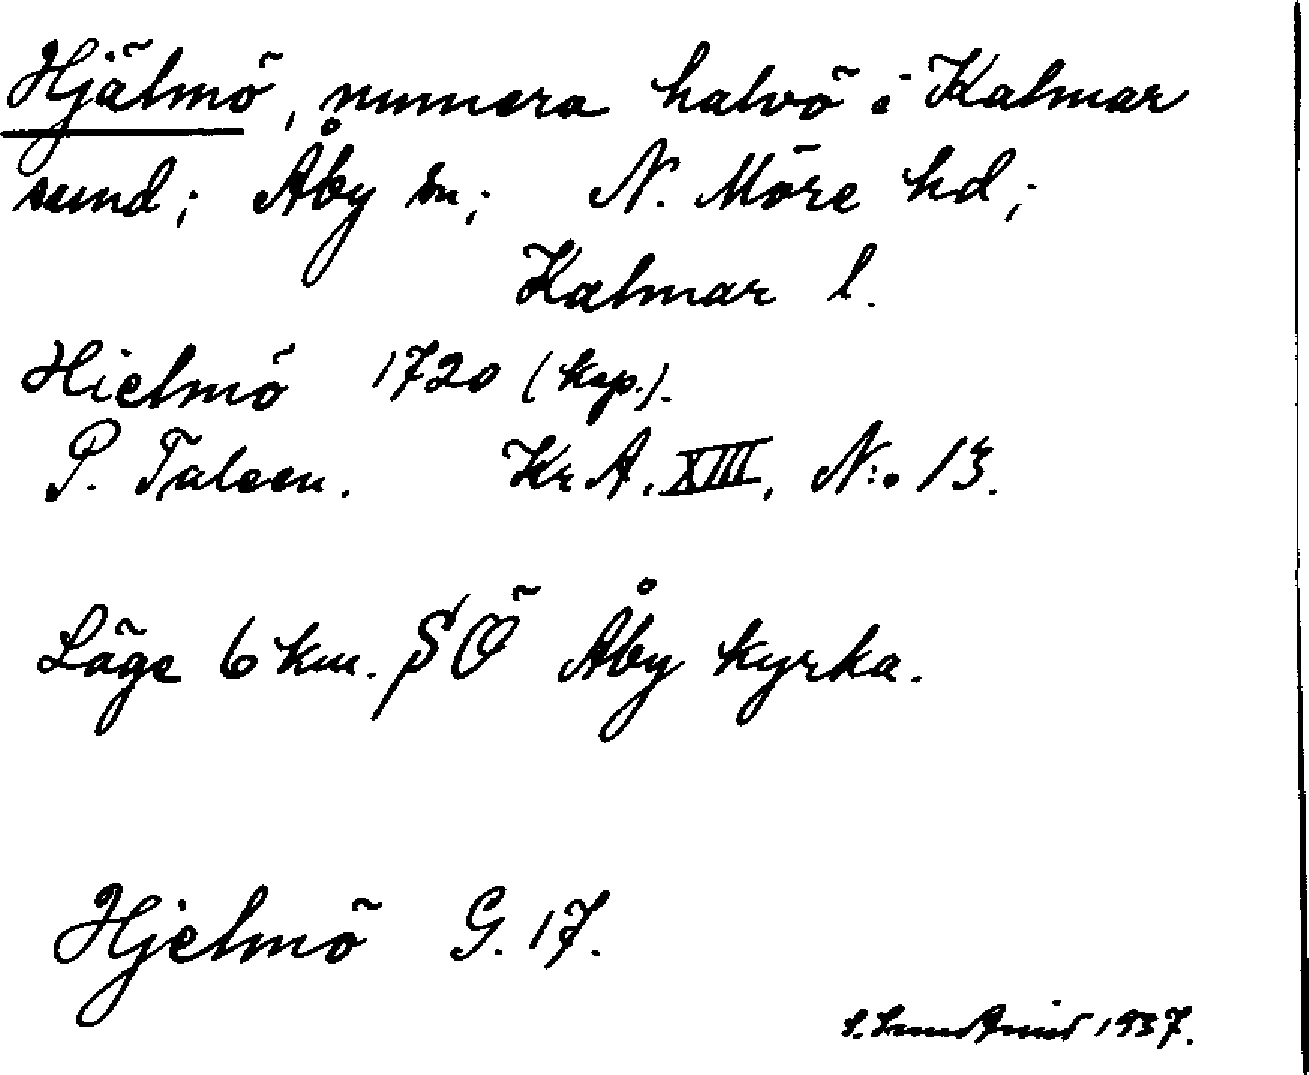 Hjälmö, numera halvö i Kalmar
sund; Åby sn; N. Möre hd;
Kalmar l.
Hielmö 1720 (ksp.).
P. Taleen. Kr A. XIII, N:o 13.
Läge 6 km. SÖ Åby kyrka.
Hjelmö G. 17.
1937.